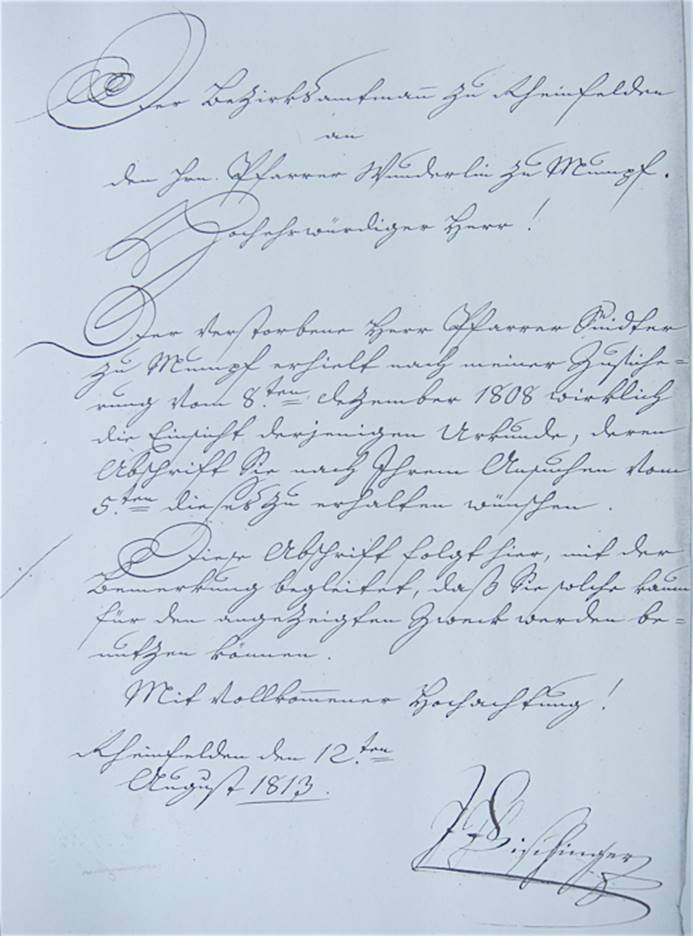 Der Bezirksamtmann zu Rheinfelden
an
den Hrn. Pfarrer Wunderlin zu Mumpf.
Hochehrwürdiger Herr!
Der verstorbene Herr Pfarrer
zu Mumpf erhielt nach meiner Zusiche=
rung vom 8.ten Dezember 1808 wirklich
die Einsicht derjenigen Urkunde, deren
Abschrift Sie nach Ihrem Ansuchen vom
5.ten dieses zu erhalten wünschen.
Diese Abschrift folgt hier, mit der
Bemerkung begleitet, daß Sie solche kaum
für den angezeigten Zweck werden be=
nutzen können.
Mit vollkommener Hochachtung!
Rheinfelden den 12.ten
August 1813.
Fischinger